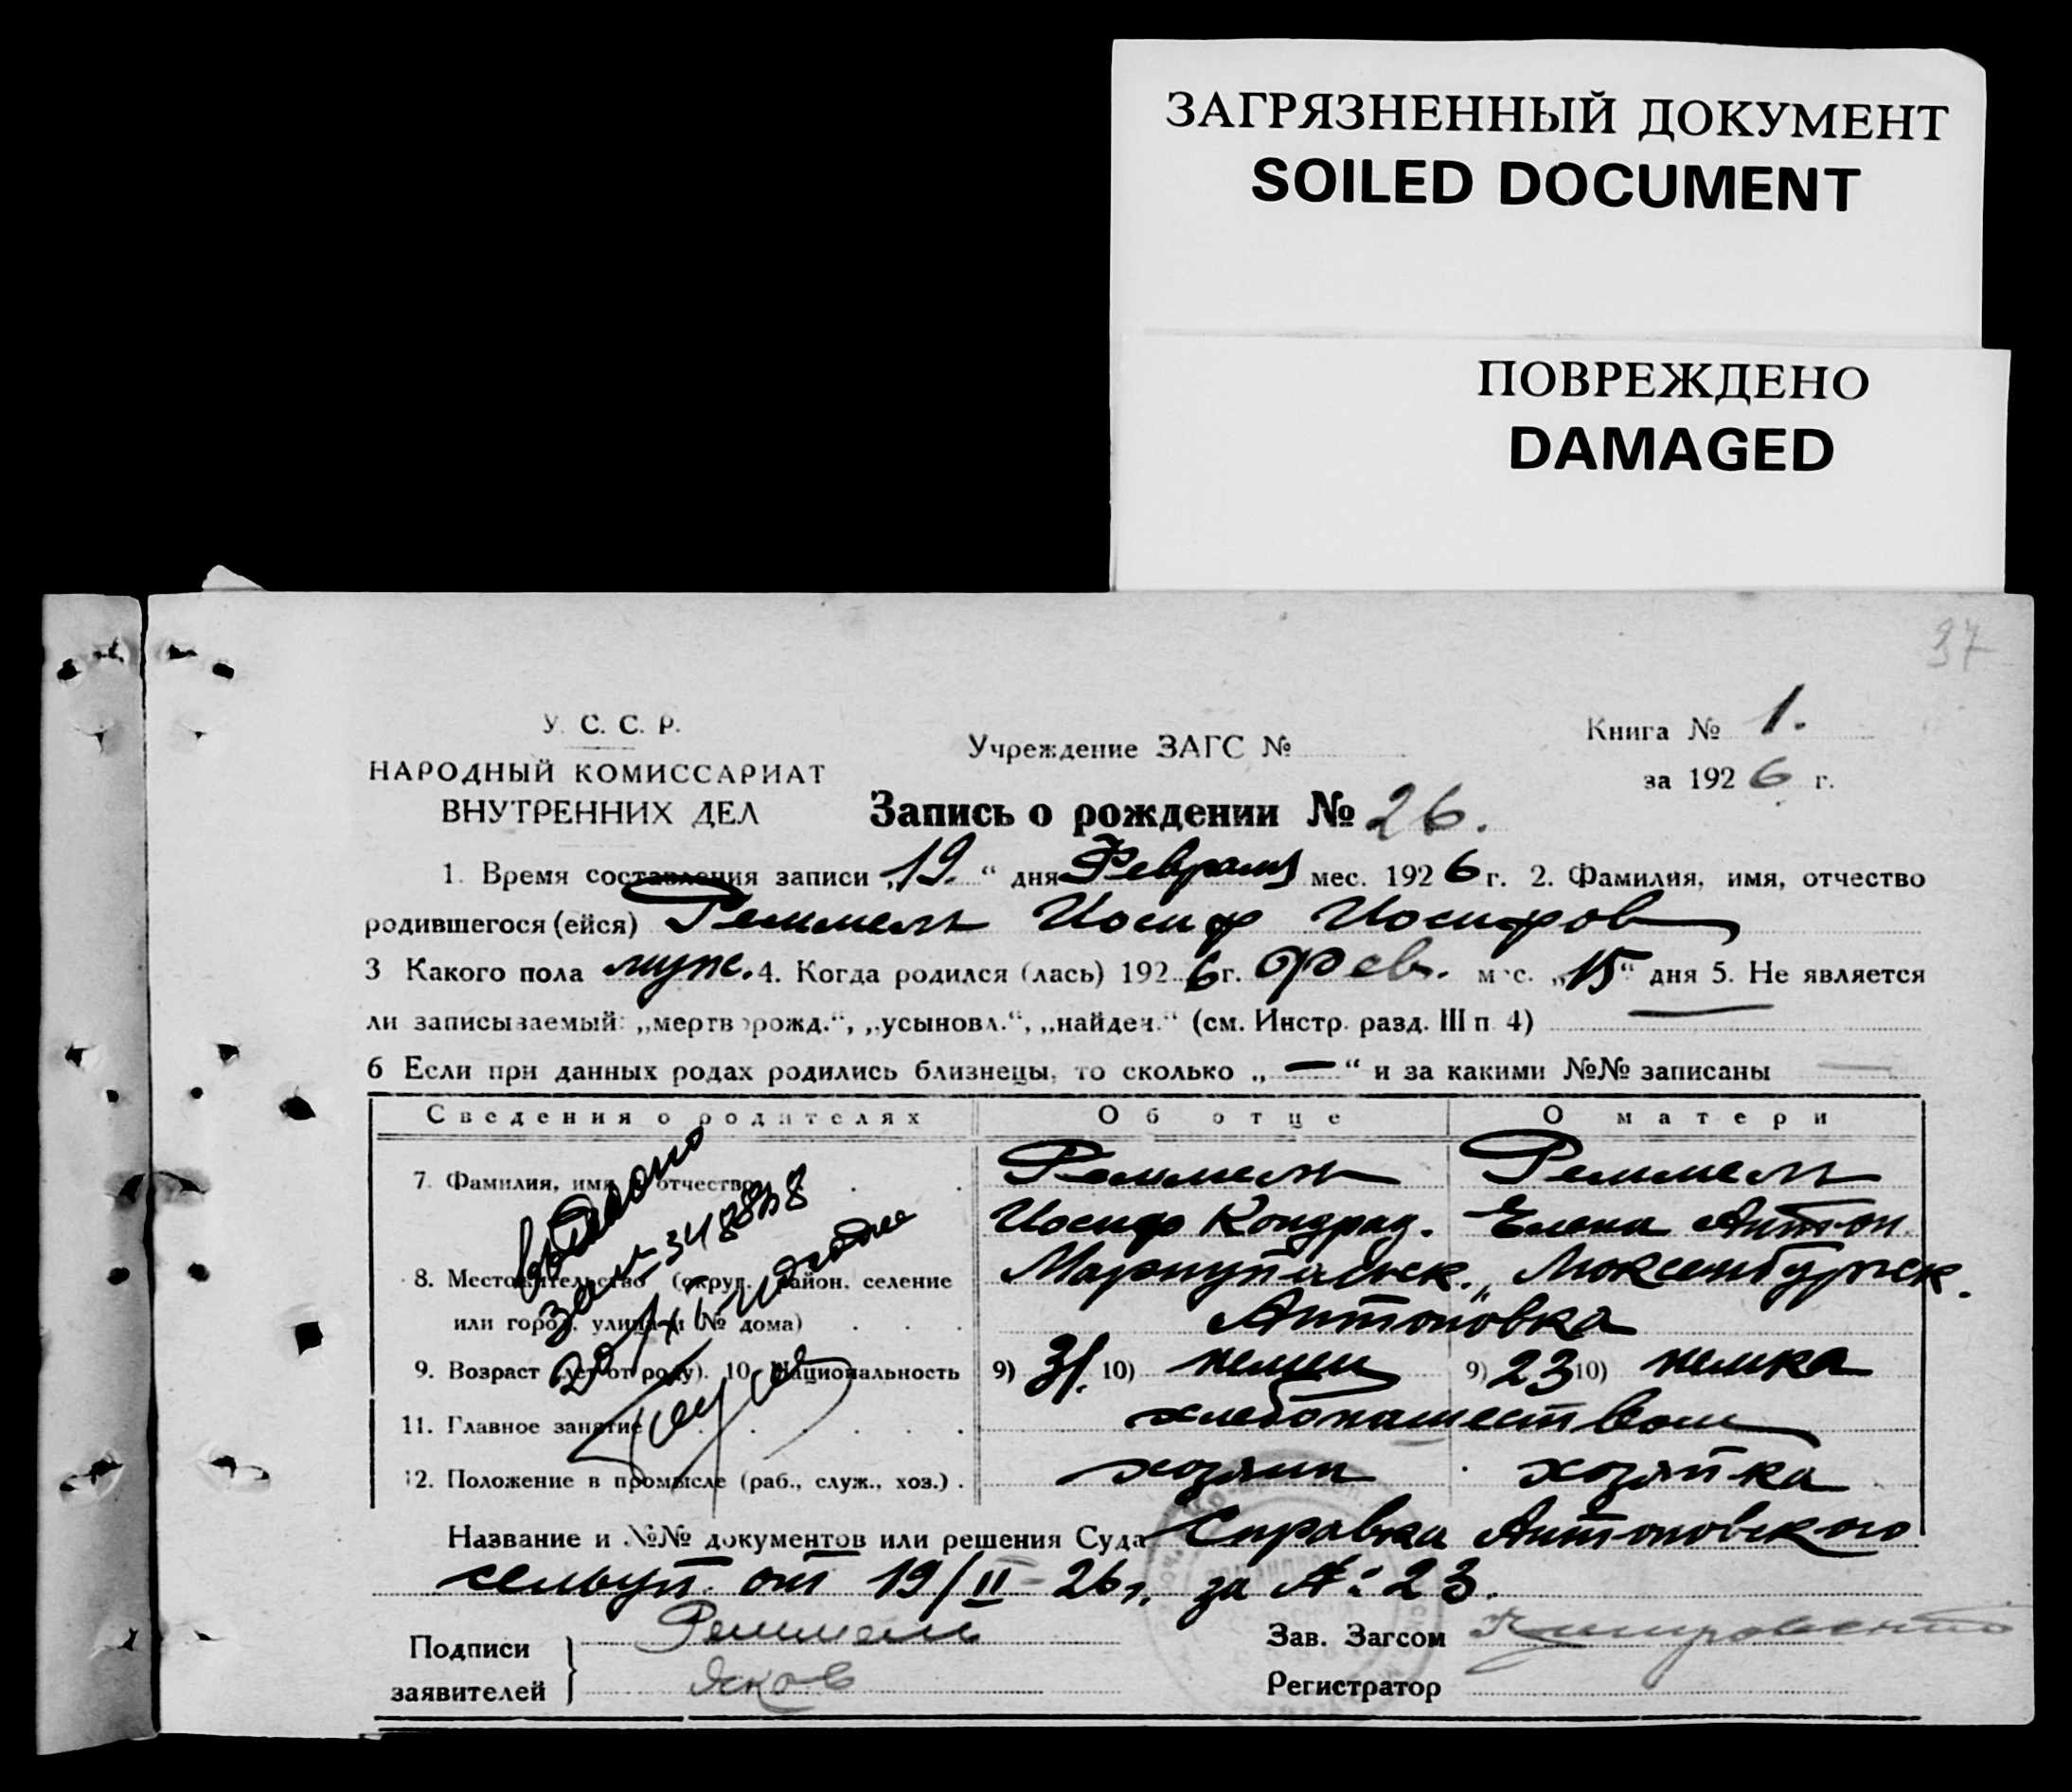 ЗАГРЯЗНЕННЫЙ ДОКУМЕНТ
SOILED DOCUMENT
ПОВРЕЖДЕНО
DAMAGED
37
У. С. С. Р.
НАРОДНЫЙ КОМИССАРИАТ
ВНУТРЕННИХ ДЕЛ
Учреждение ЗАГС №
Книга № 1.
за 1926 г.
Запись о рождении № 26.
1. Время составления записи „19.“ дня Февраля мес. 1926 г. 2. Фамилия, имя, отчество
родившегося (ейся) Реммель Иосиф Иосифов
3 Какого пола муж. 4. Когда родился (лась) 1926 г. Фев. мес. „15“ дня 5. Не является
ли записываемый: „мертворожд.“, „усыновл.“, „найден.“ (см. Инстр. разд. III п. 4) —
6 Если при данных родах родились близнецы, то сколько „—“ и за какими №№ записаны —
Сведения о родителях Об отце О матери
7. Фамилия, имя, отчество Реммель Реммель
Иосиф Кондрад. Елена Антон.
8. Местожительство (округ, район, селение Мариупольск., Люксембургск.
или город, улица и № дома) Антоновка
9. Возраст (лет от роду). 10. Национальность 9) 31. 10) немец 9) 23 10) немка
11. Главное занятие хлебопашеством
12. Положение в промысле (раб., служ., хоз.) хозяин хозяйка
Название и №№ документов или решения Суда Справка Антоновского
сельуп. от 19/II-26 г. за №: 23.
Подписи
заявителей
Реммель
Яков
Зав. Загсом
Регистратор